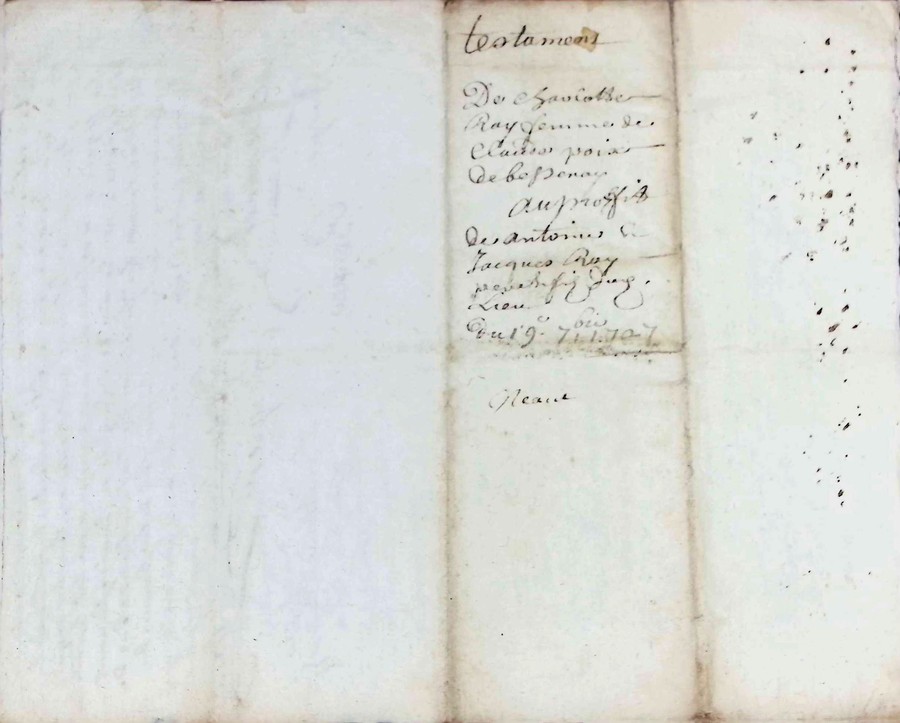 testament
De charlotte
Ray femme de
Claude poix
de bessenay
au proffit
de antoine &
Jacques Ray
pere & fils dud.
Lieu
Du 19e 7bre 1707
Neant